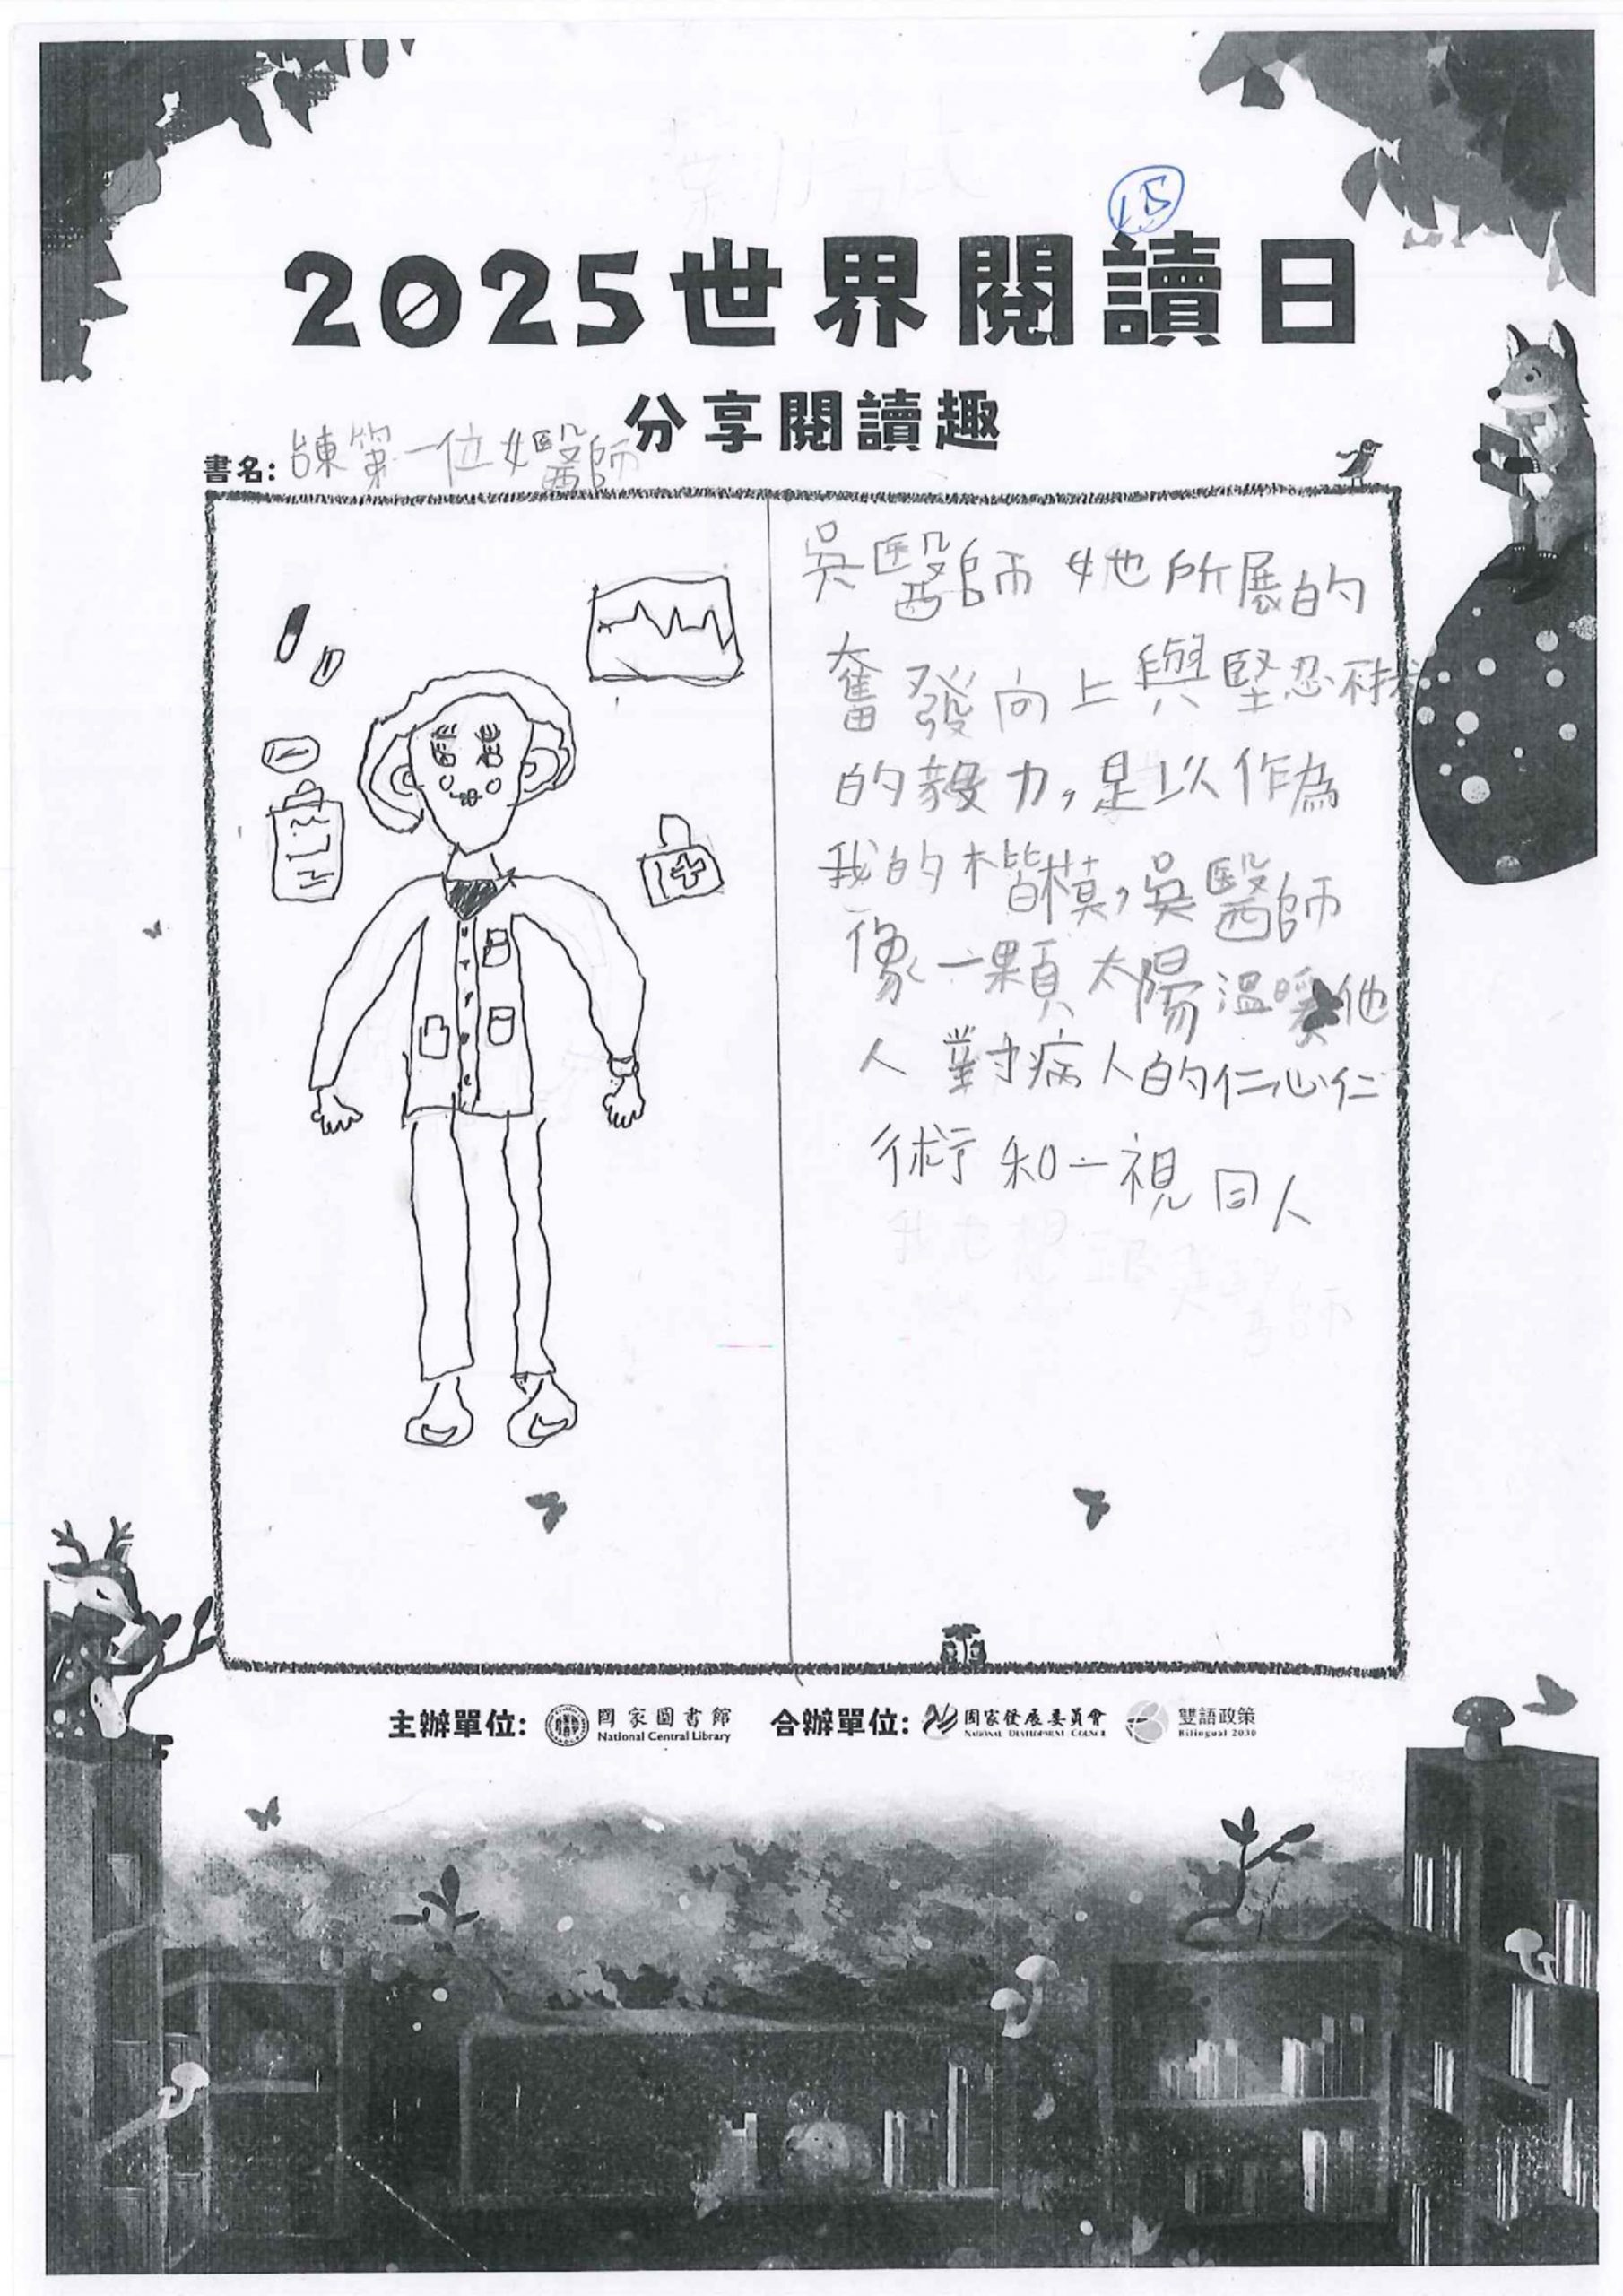 15
2025世界閱讀日
分享閱讀趣
書名: 台東第一位女醫師
吳醫師她所展的
奮發向上與堅忍不拔
的毅力,是以作為
我的楷模,吳醫師
像一顆太陽溫暖他
人對病人的仁心仁
術和一視同人
我也想跟吳醫師
主辦單位: 國家圖書館 National Central Library 合辦單位: 國家發展委員會 NATIONAL DEVELOPMENT COUNCIL 雙語政策 Bilingual 2030